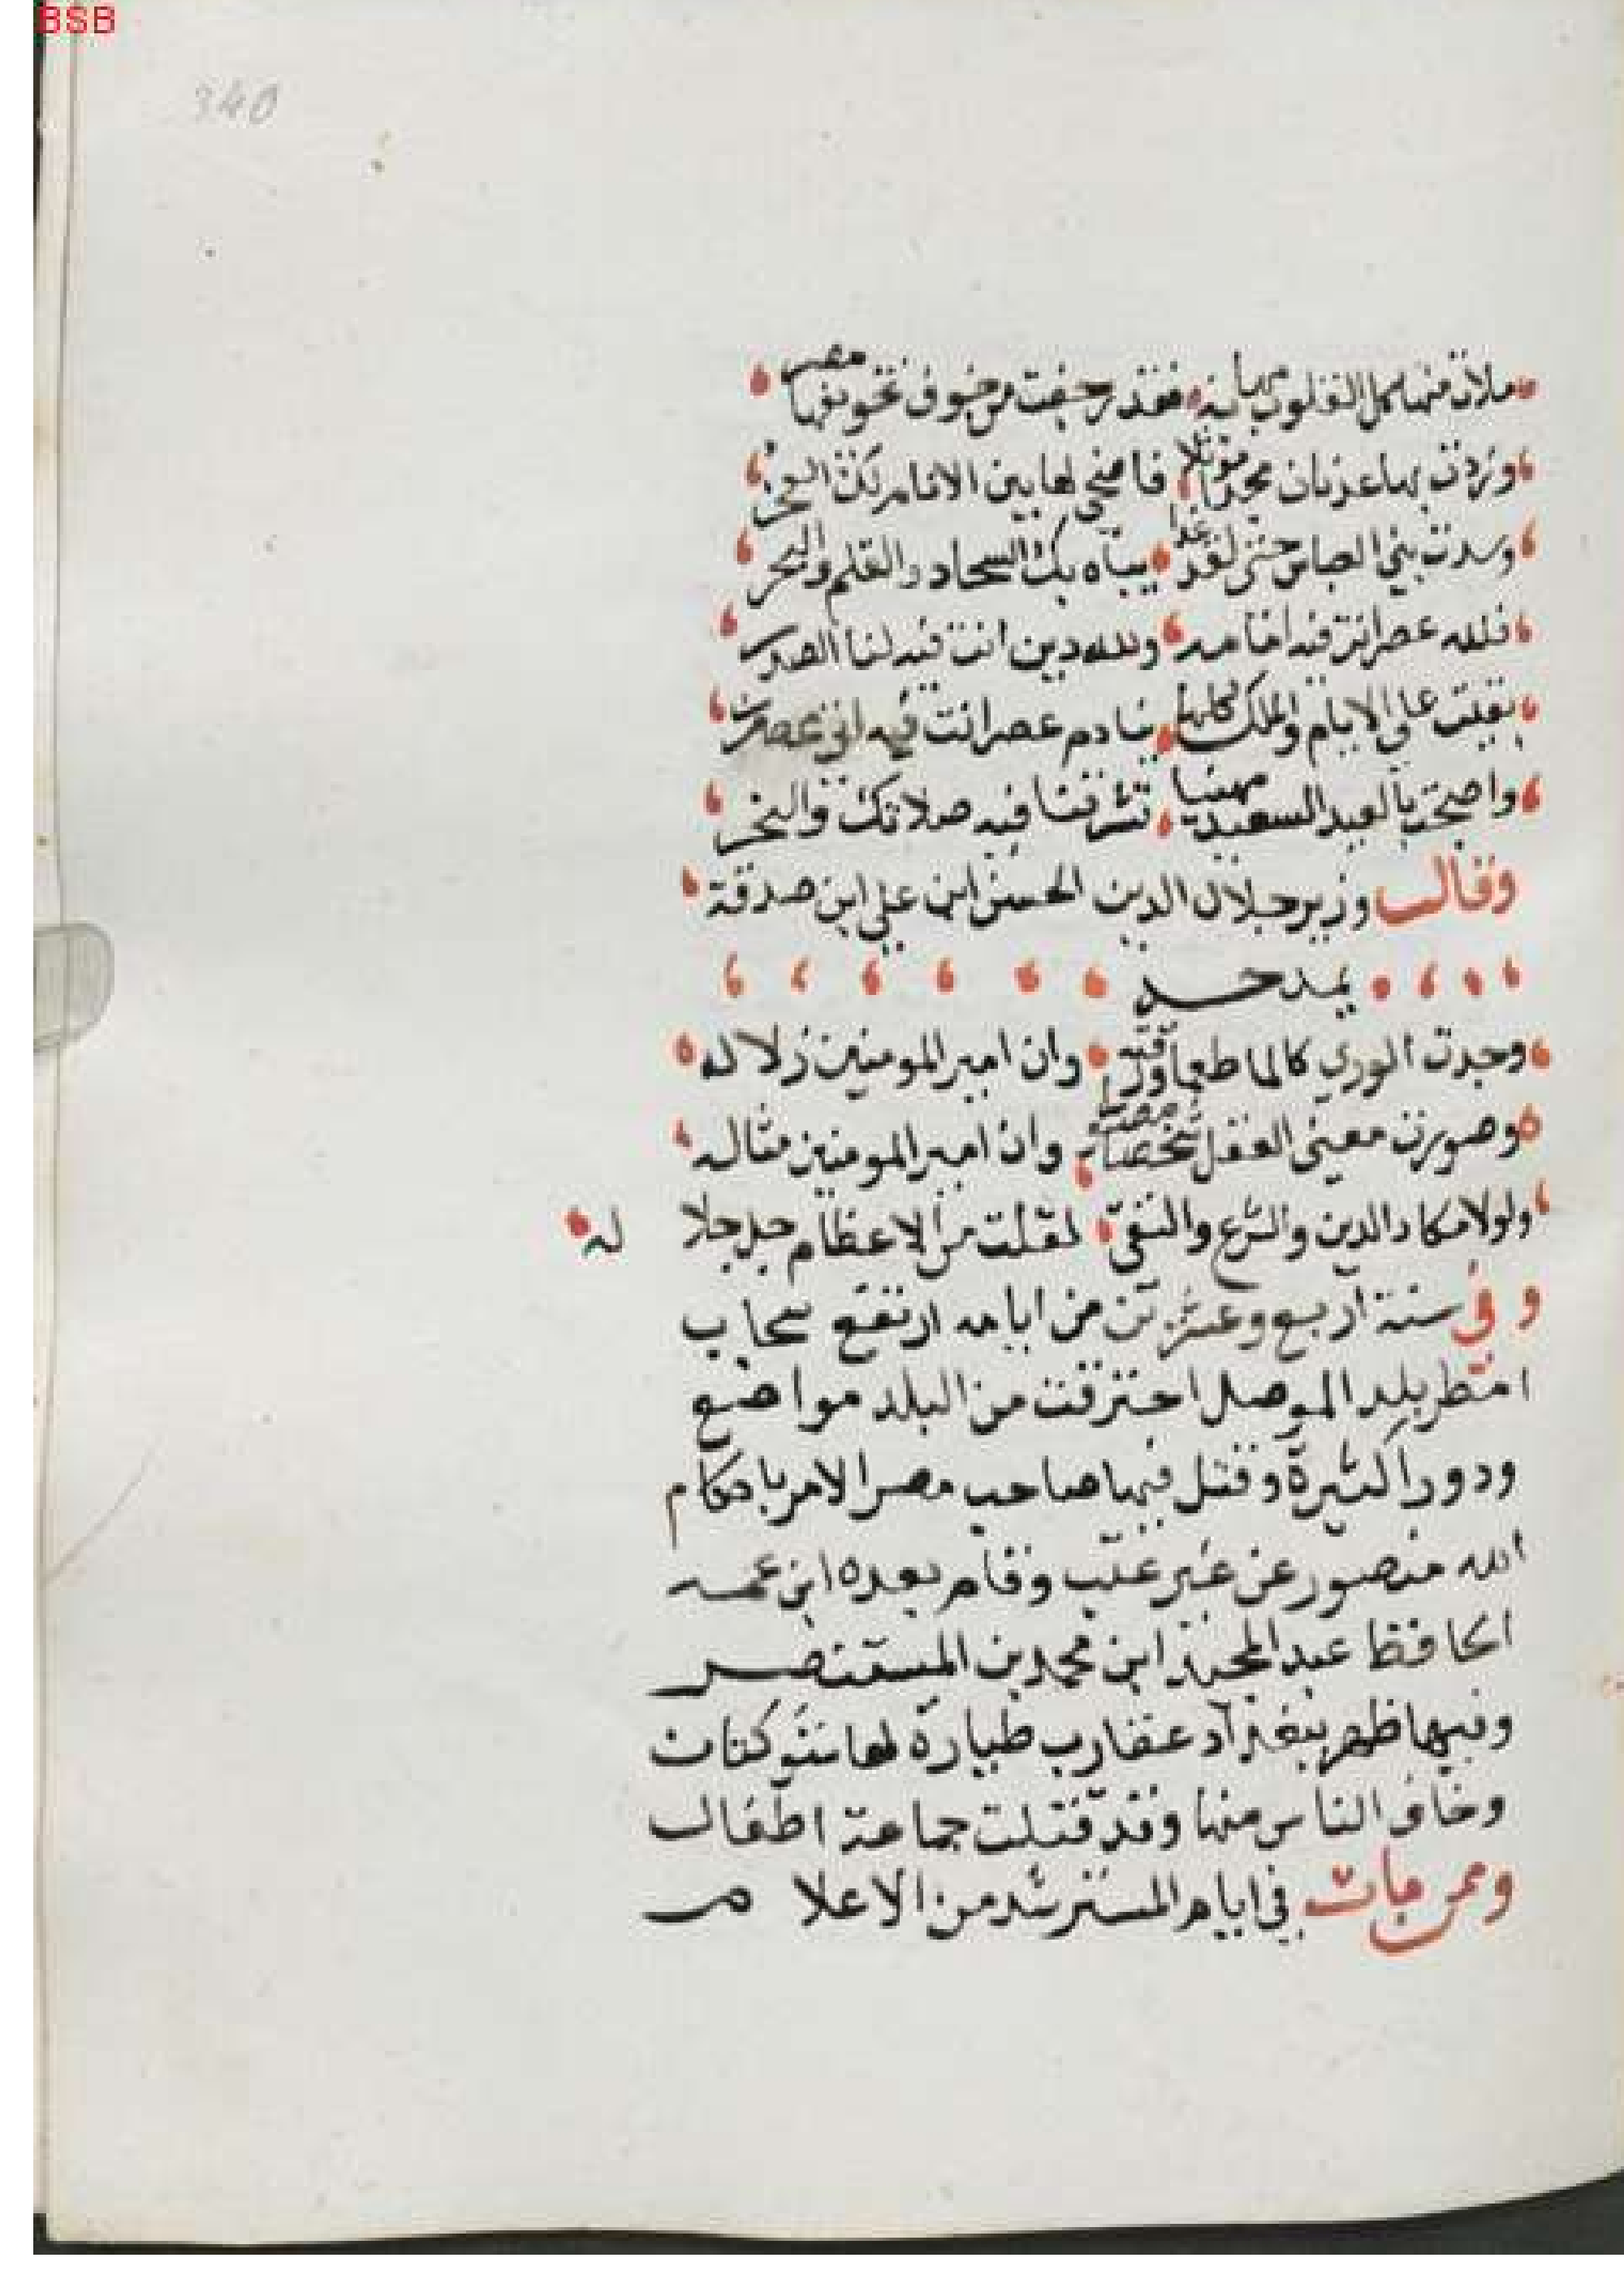 BSB
340
ملات منها كل القلوب مهابة فقد رجفت من خوف تخويفها مصر
وزدت بها عدنان مجدا موثلا فاضحى لها بين الانام بك الفخر
وسدت بني العباس حتى لقد غدا يباه بك السجاد والعلم والبحر
فلله عصر انت فيه امامه ولله دين انت فيه لنا الصدر
بقيت على الايام والملك كلما تنادم عصر انت فيه اتى عصر
واصبحت بالعيد السعيد مهنيا تشرفنا فيه صلاتك والنحر
وقال وزير جلال الدين الحسن ابن علي ابن صدقة
يمدحه
وجدت الورى كالما طعما ورقة وان امير المومنين زلاله
وصورت معنى العقل شخصا مصورا وان امير المومنين مثاله
ولولا مكان الدين والشرع والتقى لقلت من الاعظام جل جلاله
وفي سنة اربع وعشرين من ايامه ارتفع سحاب
امطر بلد الموصل احترقت من البلد مواضع
ودورا كثيرة وقتل فيها صاحب مصر الامر باحكام
الله منصور عن غير عقب وقام بعده ابن عمه
الحافظ عبد المجيد ابن محمد بن المستنصر
وفيها ظهر ببغداد عقارب طيارة لها شوكتان
وخاف الناس منها وقد قتلت جماعة اطفال
وممن مات في ايام المسترشد من الاعلام